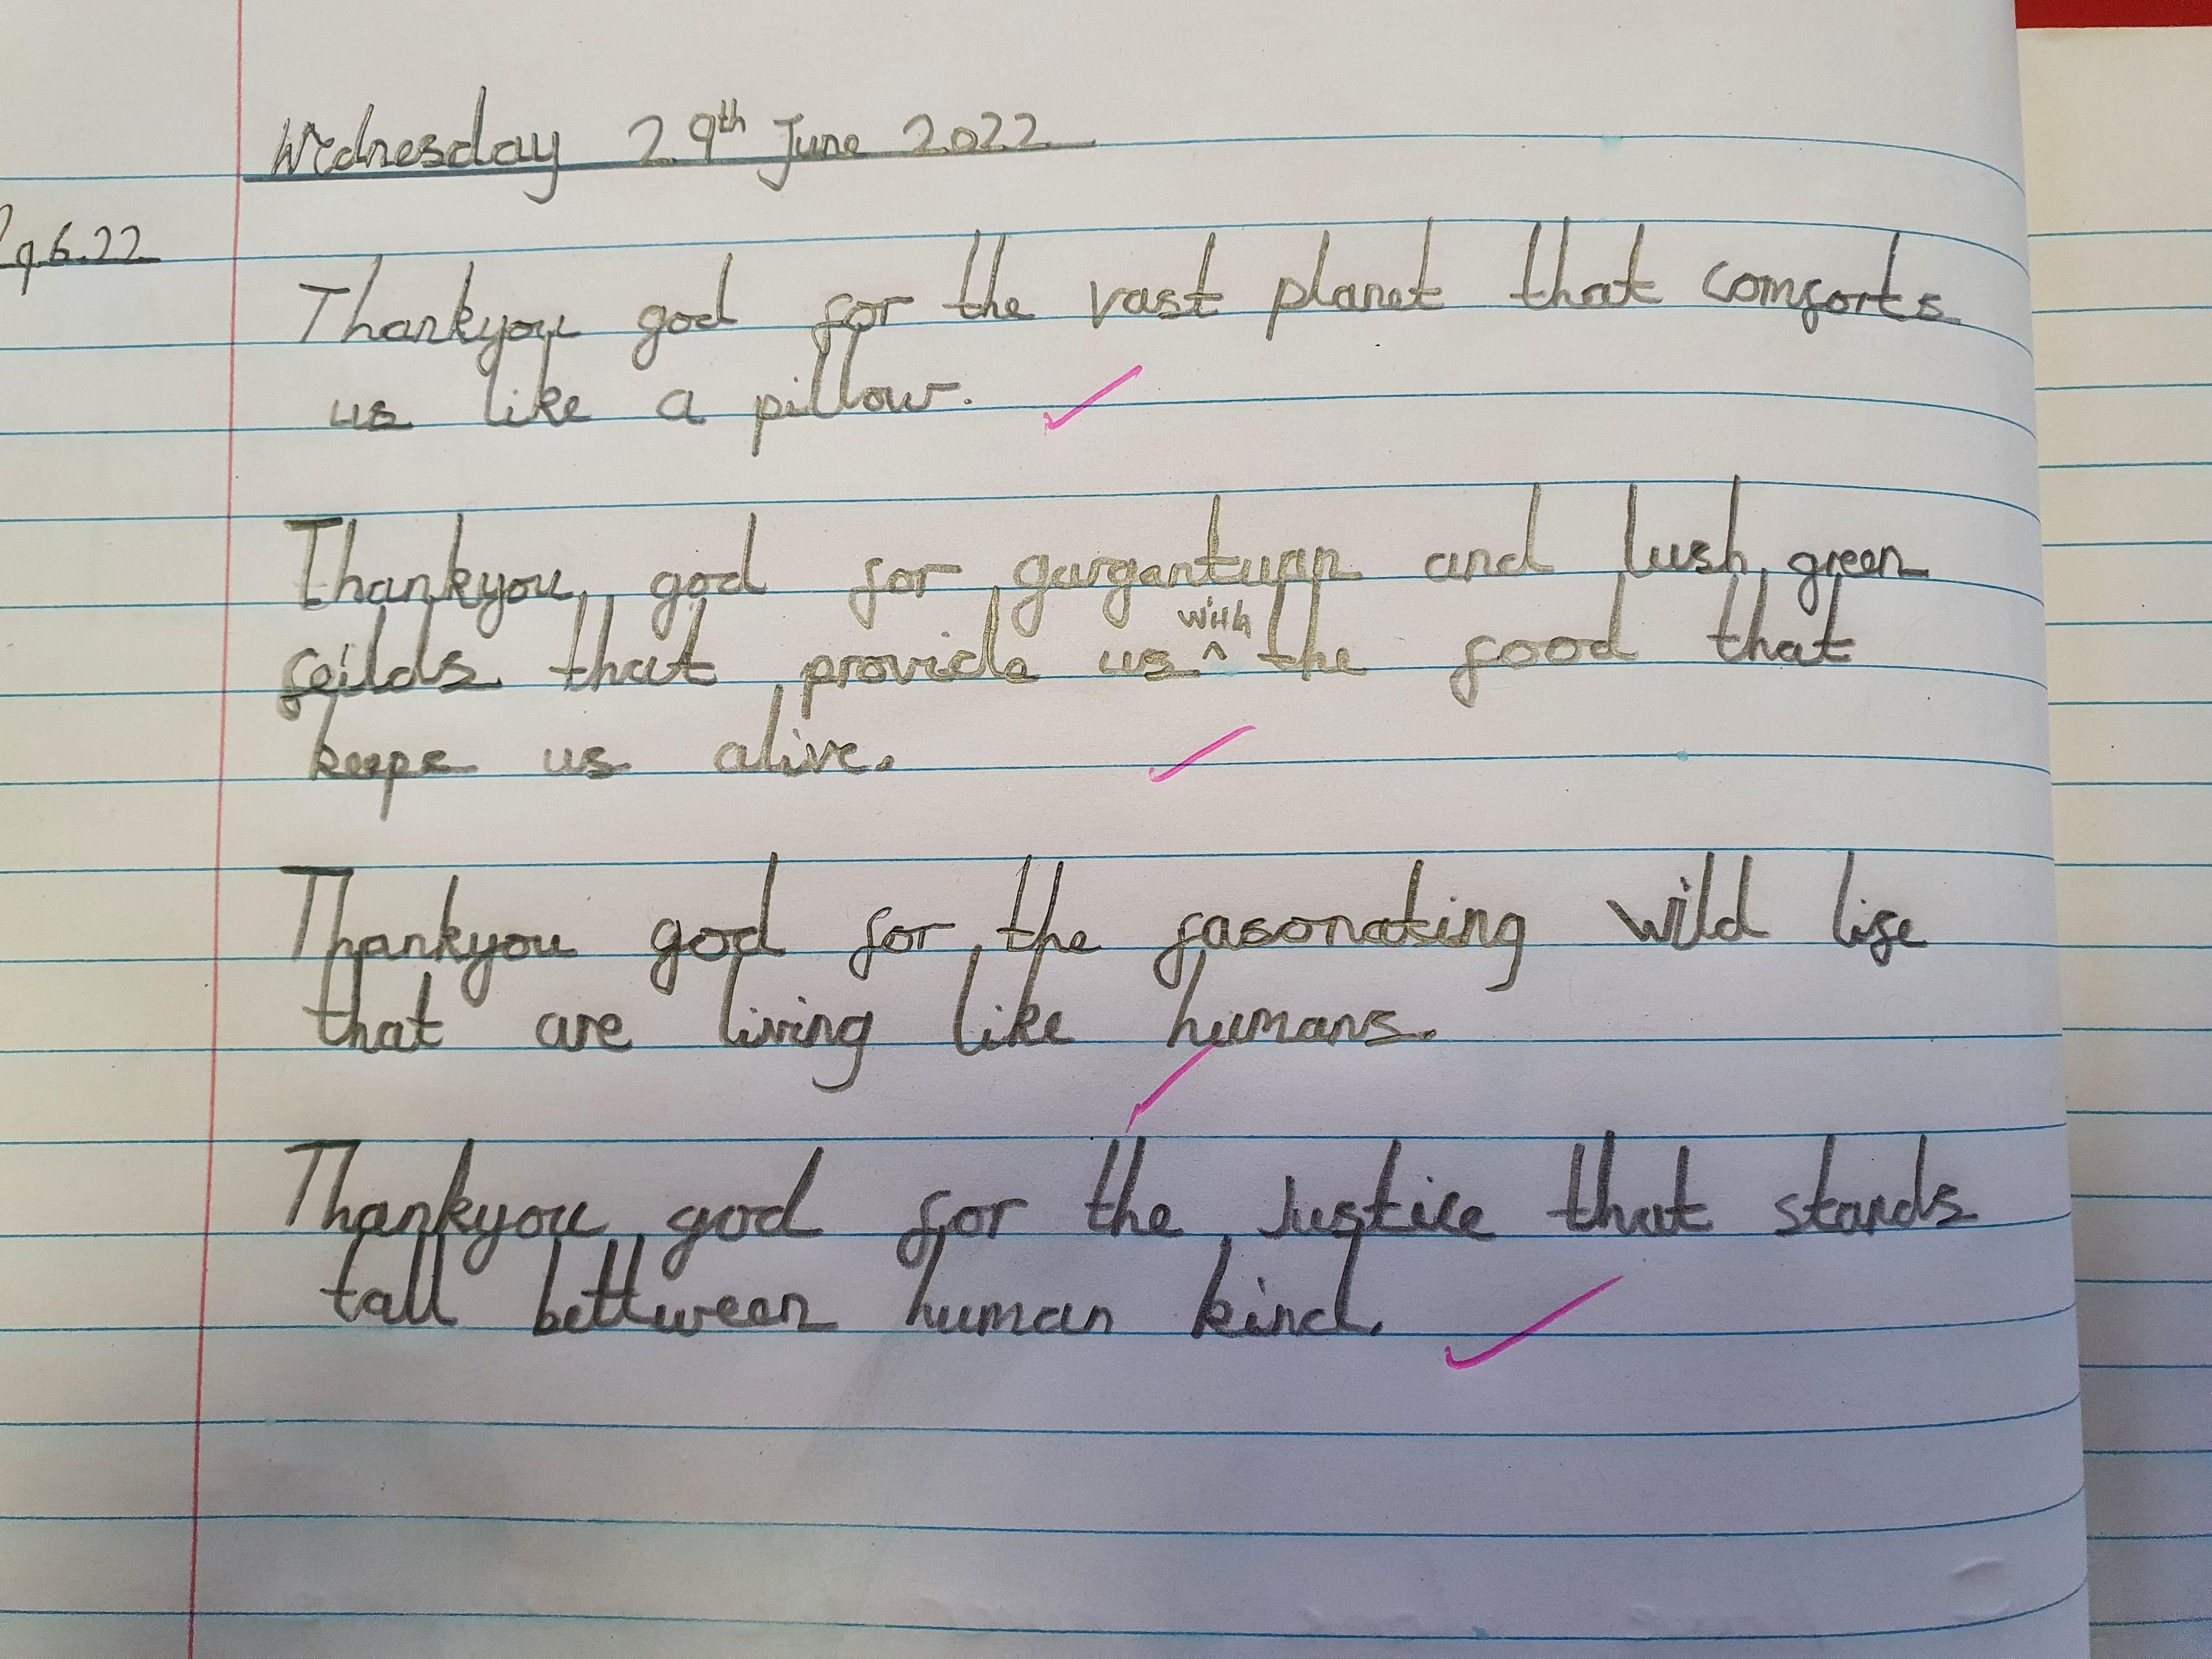 Wednesday 29th June 2022
29.6.22
Thankyou god for the vast planet that comforts
us like a pillow.
Thankyou god for gargantuan and lush green
feilds that provide us ^with the food that
keeps us alive.
Thankyou god for the fasonating wild life
that are living like humans.
Thankyou god for the Justice that stands
tall bettween human kind.